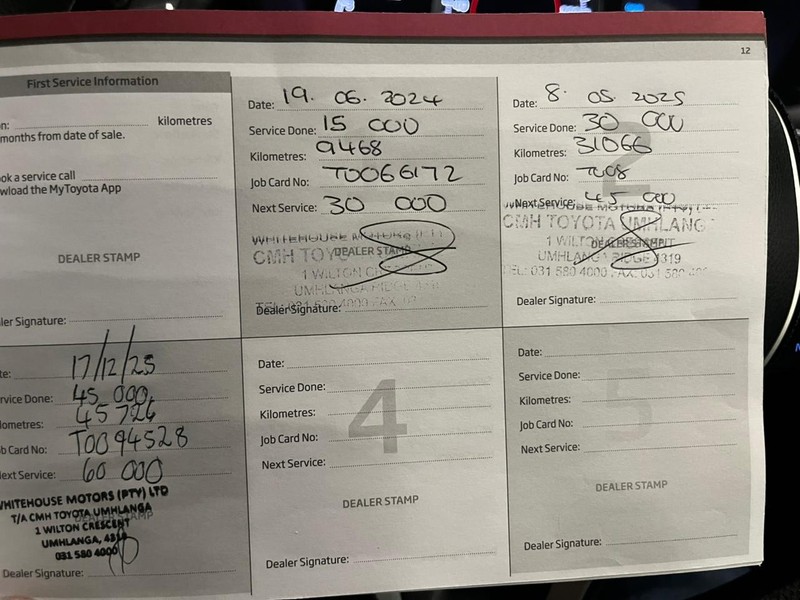 12
First Service Information
n: kilometres
months from date of sale.
ook a service call
wnload the MyToyota App
DEALER STAMP
ler Signature:
Date: 19. 06. 2024
Service Done: 15 000
Kilometres: 9468
Job Card No: T0066172
Next Service: 30 000
WHITEHOUSE MOTORS
CMH TOYO
DEALER STAMP
1 WILTON
UMHLANGA RIDGE
TEL: 031 580 4000 FAX
Dealer Signature:
2
Date: 8. 05. 2025
Service Done: 30 000
Kilometres: 31066
Job Card No:
Next Service: 45 000
WHITEHOUSE MOTORS (PTY) LTD
CMH TOYOTA UMHLANG
DEALER STAMP
1 WILT
UMHLANGA RIDGE 4319
TEL: 031 580 4000 FAX: 031 580
Dealer Signature:
te: 17/12/25
rvice Done: 45 000
lometres: 45726
b Card No: T0094528
ext Service: 60 000
WHITEHOUSE MOTORS (PTY) LTD
T/A CMH TOYOTA UMHLANGA
DEALER STAMP
1 WILTON CRESCENT
UMHLANGA, 4319
031 580 4000
Dealer Signature:
4
Date:
Service Done:
Kilometres:
Job Card No:
Next Service:
DEALER STAMP
Dealer Signature:
5
Date:
Service Done:
Kilometres:
Job Card No:
Next Service:
DEALER STAMP
Dealer Signature: